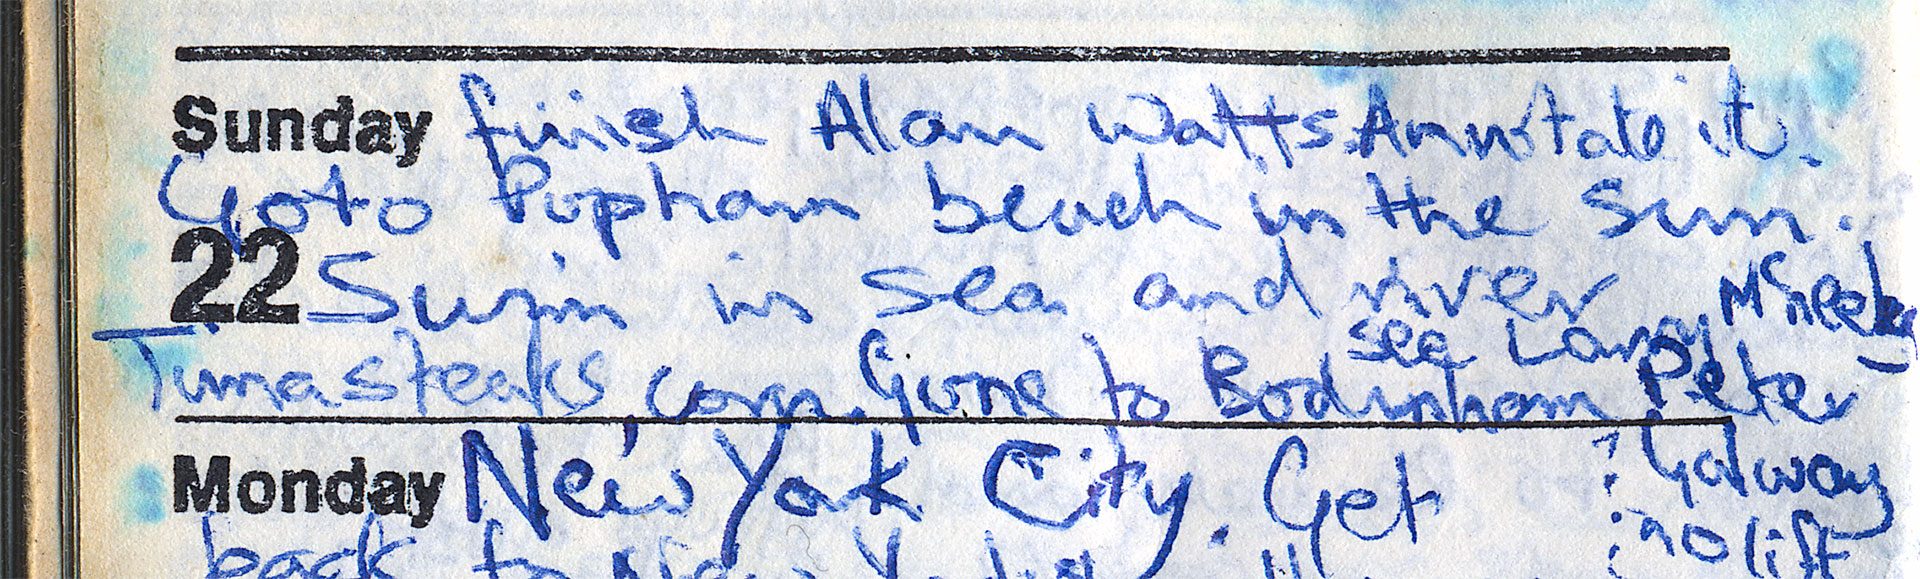 Sunday finish Alan Watts. Annotate it.
Go to Popham beach in the sun.
22 Swim in sea and river
sea Larry
Tuna steaks, corn. Gone to Bodinham Peter
Monday New York City. Get Galway
back to New no lift